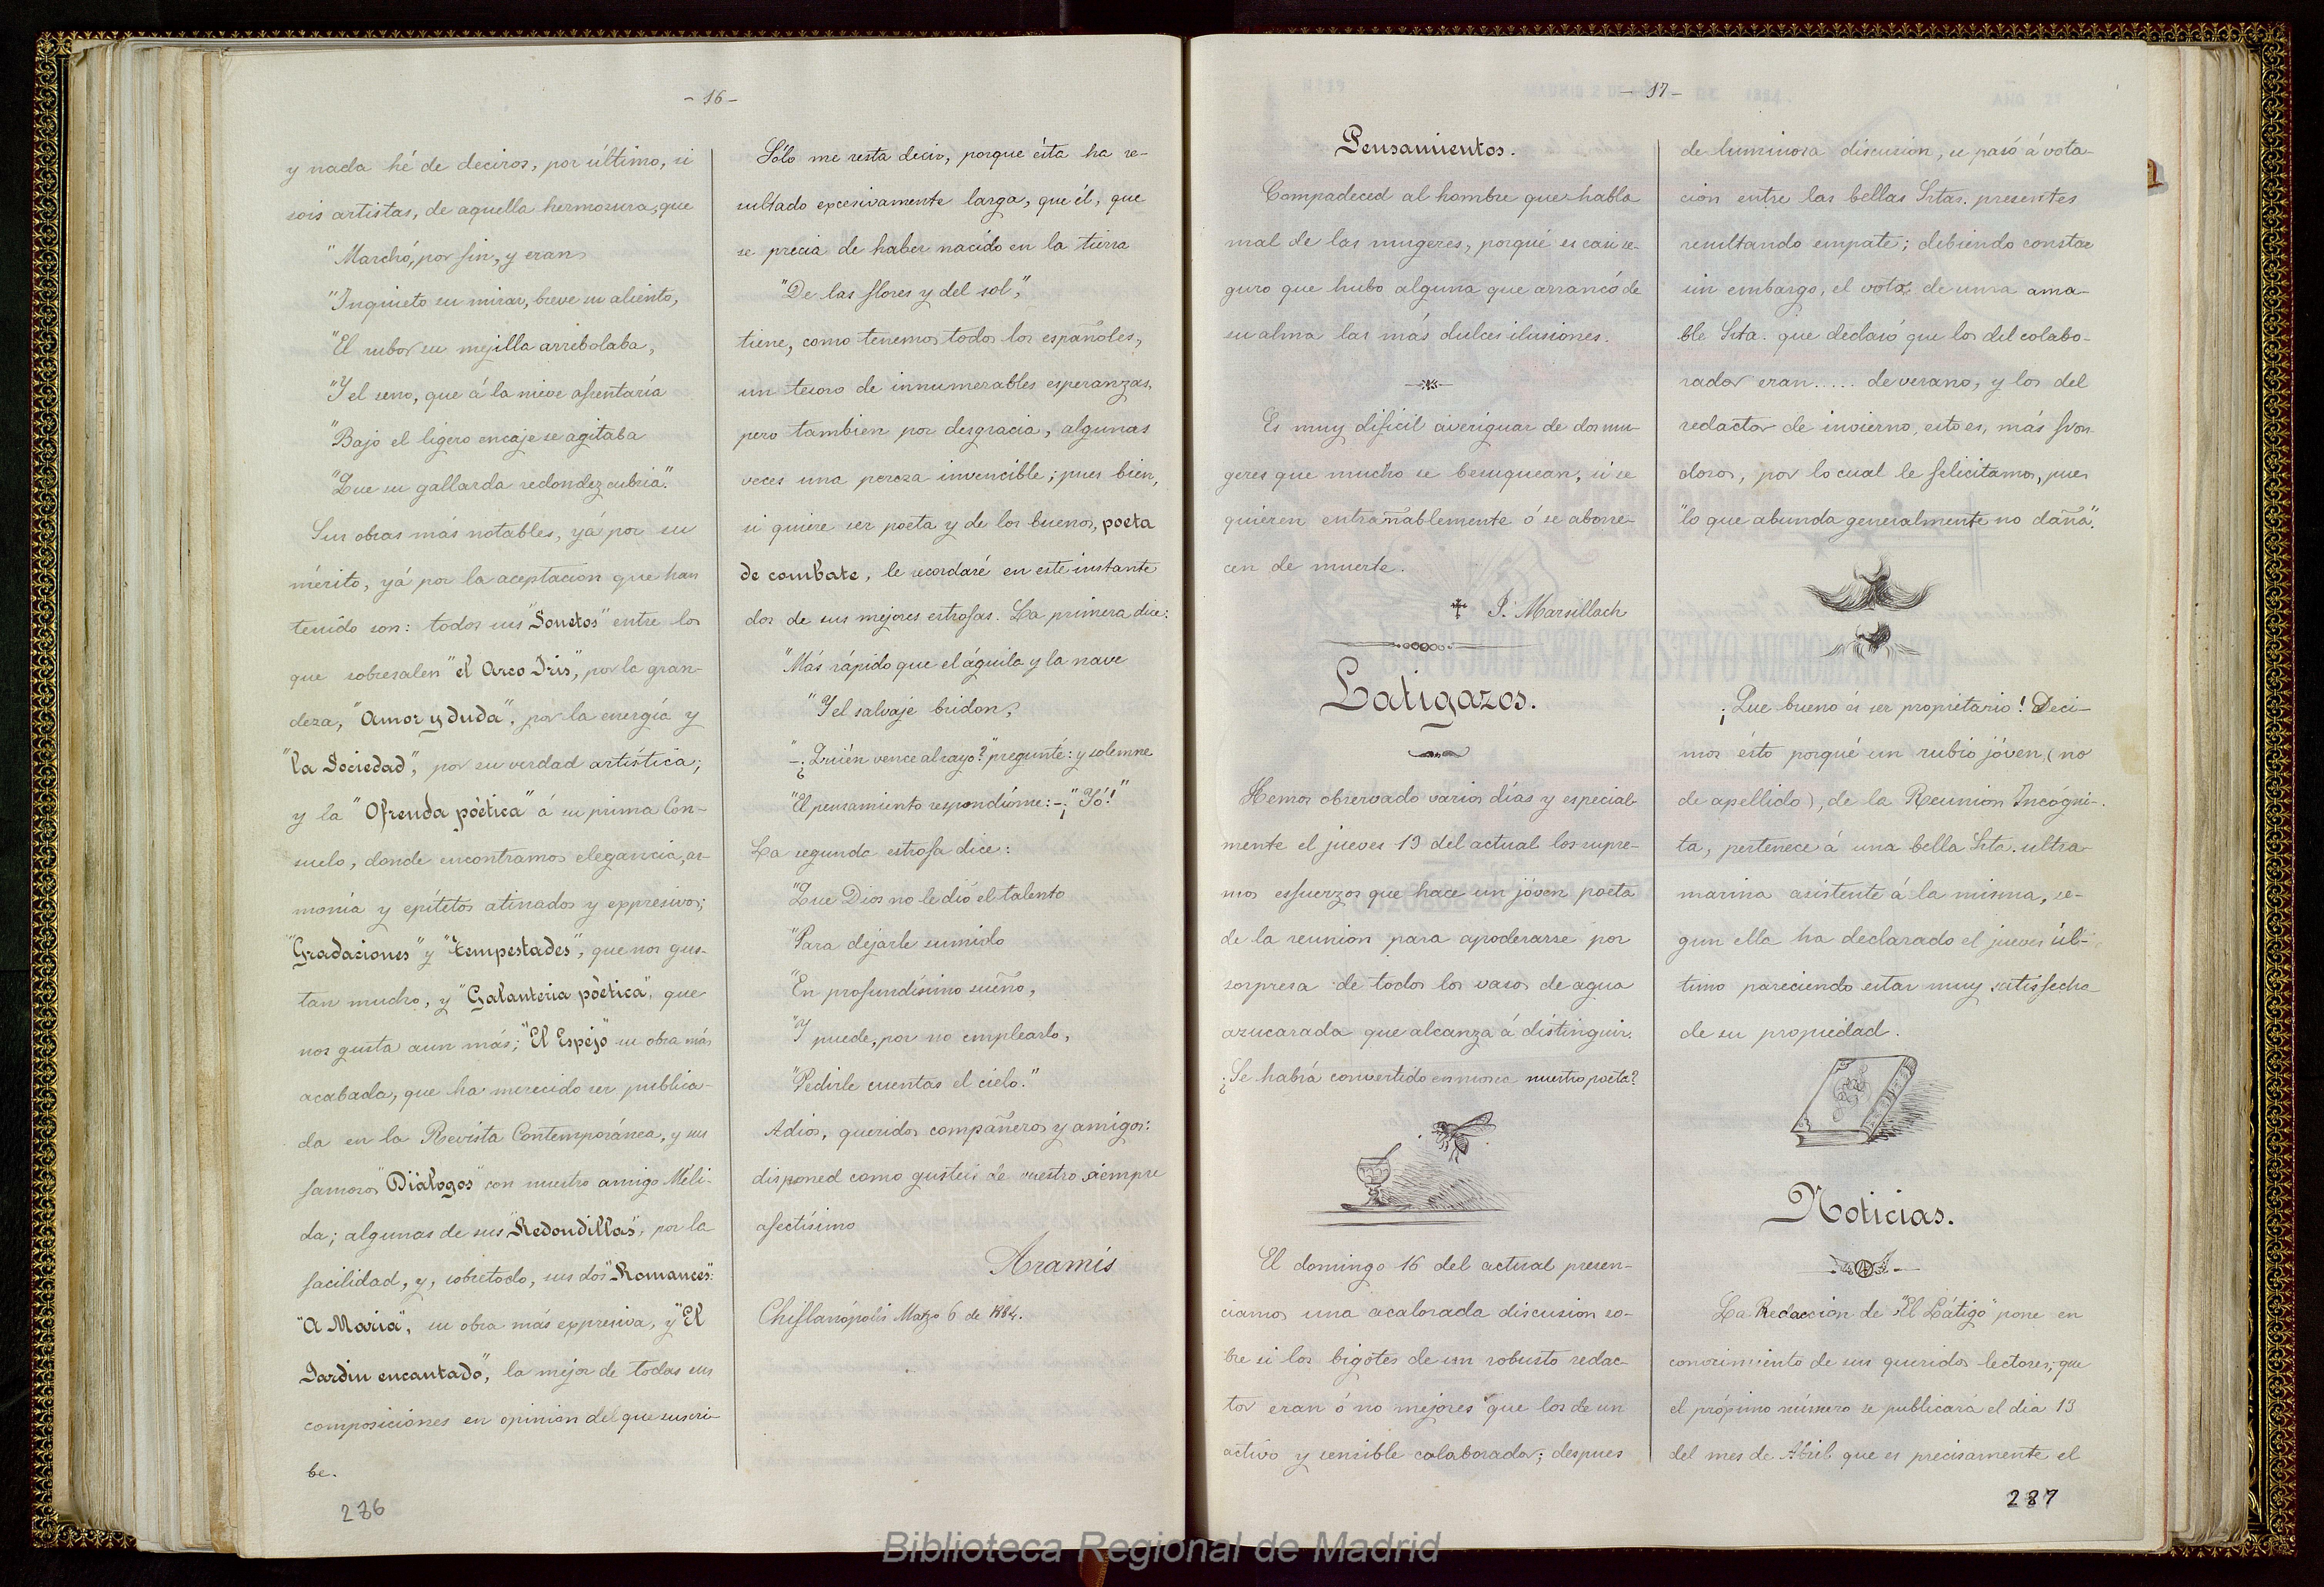 - 16 -
y nada hé de deciros, por último, si
sois artistas, de aquella hermosura, que
"Marchó, por fin, y eran
"Inquieto su mirar, breve su aliento,
"El rubor su mejilla arrebolaba,
"Y el seno, que á la nieve afrentaría
"Bajo el ligero encaje se agitaba
"Que su gallarda redondez cubría."
Sus obras más notables, yá por su
mérito, yá por la aceptacion que han
tenido son: todos sus "Sonetos" entre los
que sobresalen "el Arco Iris", por la gran-
deza, "Amor y duda", por la energía y
"la Sociedad", por su verdad artística;
y la "Ofrenda poética" á su prima Con-
suelo, donde encontramos elegancia, ar-
monía y epítetos atinados y expresivos;
"Gradaciones" y "Tempestades", que nos gus-
tan mucho, y "Galanteria poética", que
nos gusta aun más; "El Espejo" su obra más
acabada, que ha merecido ser publica-
da en la Revista Contemporánea, y sus
famosos "Diálogos" con nuestro amigo Méli-
da; algunas de sus "Redondillas", por la
facilidad, y, sobretodo, sus dos "Romances":
"A María", su obra más expresiva, y "El
Jardin encantado", la mejor de todas sus
composiciones en opinion del que suscri-
be.
286
Sólo me resta decir, porque ésta ha re-
sultado excesivamente larga, que él, que
se precia de haber nacido en la tierra
"De las flores y del sol",
tiene, como tenemos todos los españoles,
un tesoro de innumerables esperanzas,
pero tambien por desgracia, algunas
veces una pereza invencible; pues bien,
si quiere ser poeta y de los buenos, poeta
de combate, le recordaré en este instante
dos de sus mejores estrofas. La primera dice:
"Más rápido que el águila y la nave
"Y el salvaje bridon,
"-¿Quién vence al rayo?" pregunté: y solemne
"El pensamiento respondióme: -¡"Yó!"
La segunda estrofa dice:
"Que Dios no le dió el talento
"Para dejarle sumido
"En profundísimo sueño,
"Y puede, por no emplearlo,
"Pedirle cuentas el cielo."
Adios, queridos compañeros y amigos:
disponed como gusteis de vuestro siempre
afectísimo
Aramis
Chiflanópolis Marzo 6 de 1884.
- 17 -
Pensamientos.
Compadeced al hombre que habla
mal de las mugeres, porqué es casi se-
guro que hubo alguna que arrancó de
su alma las más dulces ilusiones.
Es muy dificil averiguar de dos mu-
geres que mucho se besuquean, si se
quieren entrañablemente ó se aborre-
cen de muerte.
J. Marsillach
Latigazos.
Hemos observado varios días y especial-
mente el jueves 13 del actual los supre-
mos esfuerzos que hace un jóven poeta
de la reunion para apoderarse por
sorpresa de todos los vasos de agua
azucarada que alcanza á distinguir.
¿Se habrá convertido en mosca nuestro poeta?
El domingo 16 del actual presen-
ciamos una acalorada discusion so-
bre si los bigotes de un robusto redac-
tor eran ó no mejores que los de un
activo y sensible colaborador; despues
de luminosa discusion, se pasó á vota-
cion entre las bellas Srtas. presentes
resultando empate; debiendo constar
sin embargo, el voto de una ama-
ble Srta. que declaró que los del colabo-
rador eran..... de verano, y los del
redactor de invierno, esto es, más fron-
dosos, por lo cual le felicitamos, pues
"lo que abunda generalmente no daña".
¡Que bueno és ser propietario! Deci-
mos ésto porqué un rubio jóven, (no
de apellido), de la Reunion Incógni-
ta, pertenece á una bella Srta. ultra-
marina asistente á la misma, se-
gun ella ha declarado el jueves úl-
timo pareciendo estar muy satisfecha
de su propiedad.
Noticias.
La Redaccion de "El Látigo" pone en
conocimiento de sus queridos lectores, que
el próximo número se publicará el dia 13
del mes de Abril que es precisamente el
287
Biblioteca Regional de Madrid